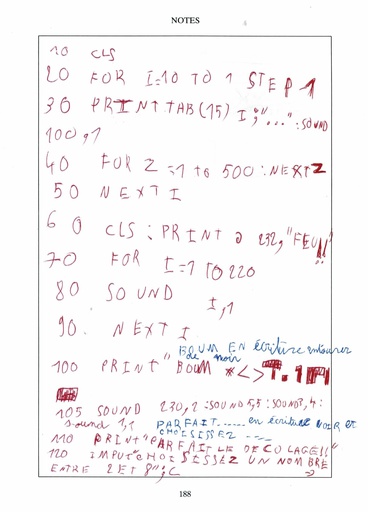 NOTES
10 CLS
20 FOR I=10 TO 1 STEP 1
30 PRINT TAB(15) I;"..." :SOUND
100,1
40 FOR Z =1 to 500 :NEXT Z
50 NEXT I
60 CLS : PRINT @ 232,"FEU!!
70 FOR I=1 TO 220
80 SOUND I,1
90. NEXT I
BOUM EN écriture entourer
de noir
100 PRINT" BOUM *<>
105 SOUND 230,2 :SOUND 5,5 :SOUND 1,4 :
sound 1,1 PARFAIT...... en écriture NOIR et
CHOISISSEZ ----
110 PRINT"PARFAIT LE DECOLAGE!!"
120 IMPUT"CHOISISSEZ UN NOMBRE
ENTRE 2 ET 8";C
188